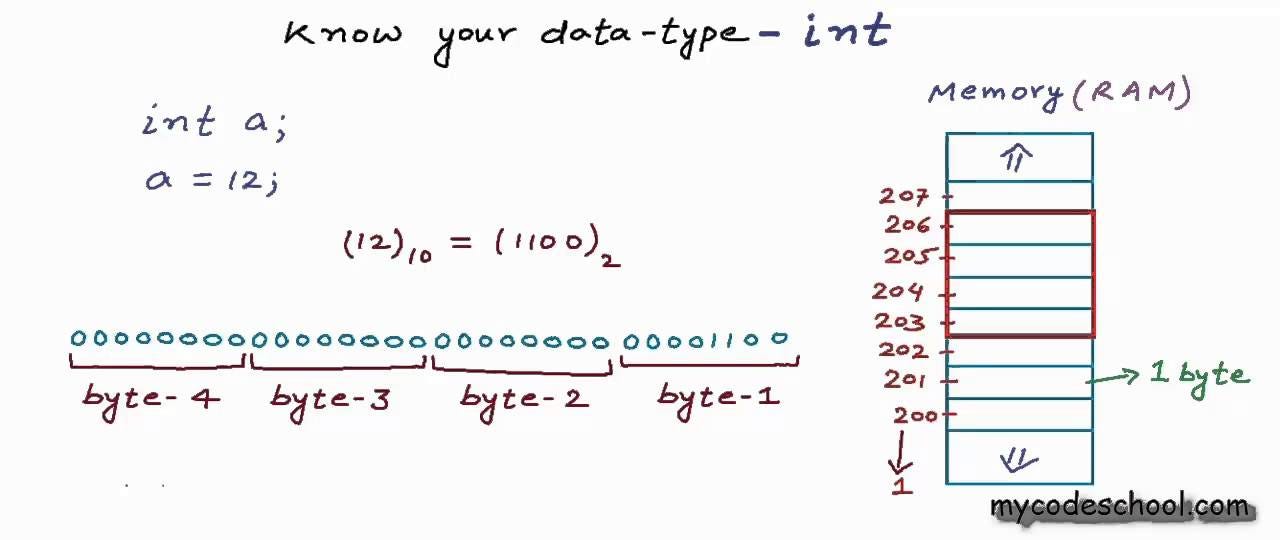 Know your data-type - int
int a;
a = 12;
(12)10 = (1100)2
00000000 00000000 00000000 00001100
byte-4 byte-3 byte-2 byte-1
Memory (RAM)
207
206
205
204
203
202
201
200
1
1 byte
mycodeschool.com